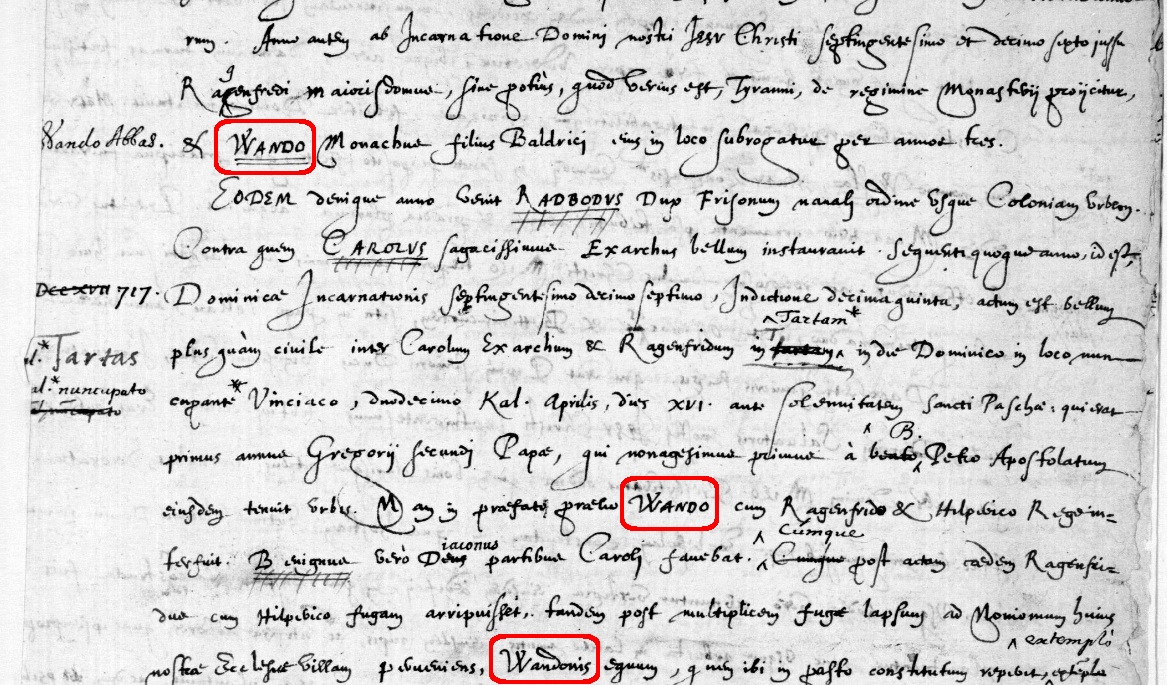 rum. Anno autem ab Incarnatione Domini nostri Jesv Christi septingentesimo et decimo sexto jussu
g
Ragenfredi maiorisdomus, siue potiùs, quod verius est, Tyranni, de regimine Monasterij proijcitur,
Wando Abbas. & WANDO Monachus filius Baldricj eius in loco subrogatur per annos tres.
EODEM denique anno venit RADBODVS Dux Frisonum nauali ordine vsque Coloniam vrbem.
Contra quem CAROLVS sagacissimus Exarchus bellum instaurauit. Sequenti quoque anno, id est,
Dccxvii 717. Dominicæ Incarnationis septingentesimo decimo septimo, Indictione decima quinta, actum est bellum
Tartam*
al.* Tartas plus quàm civile inter Carolum Exarchum & Ragenfridum in die Dominico in loco nun-
al.* nuncupato
nuncupato cupante * Vinciaco, duodecimo Kal. Aprilis, dies XVI. ante solemnitatem Sancti Paschæ: qui erat
B.
primus annus Gregorij secundj Papæ, qui nonagesimus primus à beato Petro Apostolatum
eiusdem tenuit vrbis. Nam in præfato prælio WANDO cum Ragenfrido & Hilperico Rege in-
iaconus Cúmque
terfuit. Benignus verò Deus partibus Carolj fauebat. Cumque post actam cædem Ragenfri-
dus cum Hilperico fugam arripuisset, tandem post multiplicem fugæ lapsum ad Moriomum huius
extemplò
nostræ Ecclesiæ villam perueniens, Wandonis equum, quem ibi in pasto constitutum reperit, extemplo